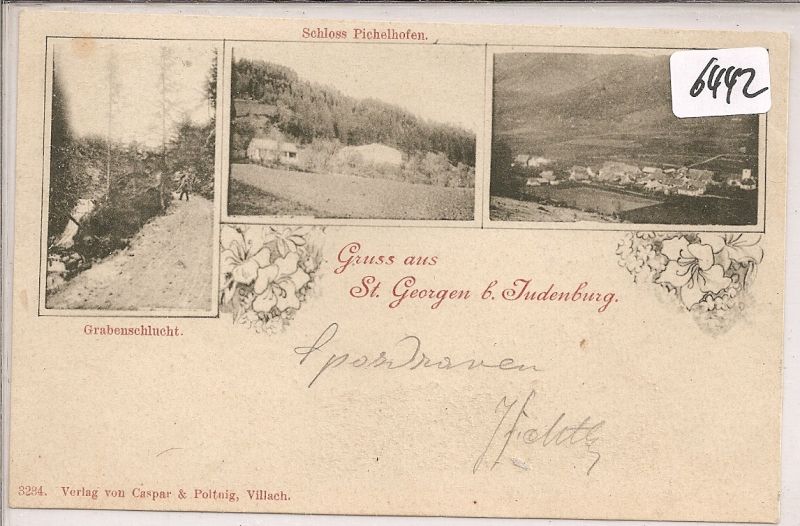 Schloss Pichelhofen.
6442
Gruss aus
St. Georgen b. Judenburg.
Grabenschlucht.
Spozdraven
3234. Verlag von Caspar & Poltnig, Villach.